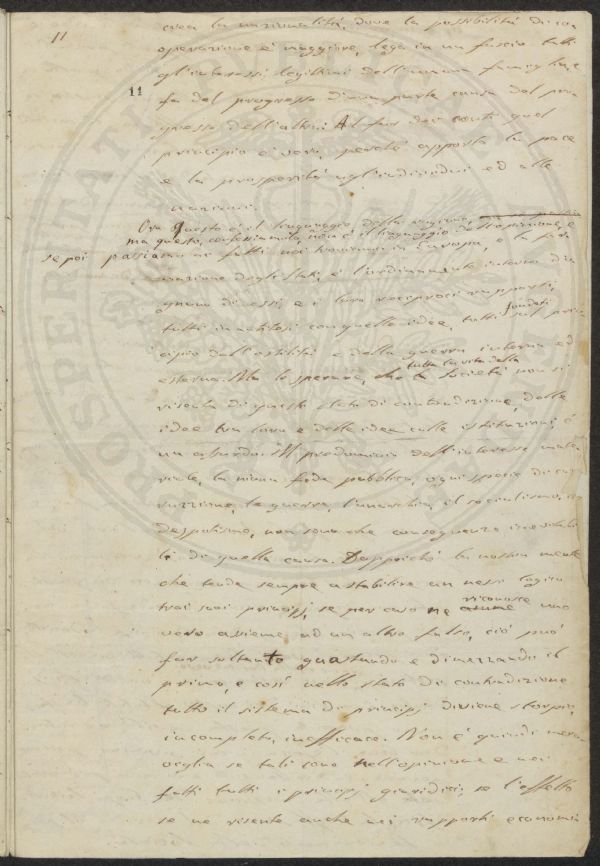 11
11
crea la nazionalità, dove la possibilità di co-
operazione è maggiore, lega in un fascio tutti
gl'interessi legittimi dell'umana famiglia, e
fa del progresso d'una parte causa del pro-
gresso dell'altra. Al far dei conti quel
principio è vero, perché apporta la pace
e la prosperità agl'individui ed alle
nazioni.
Ora questo è il linguaggio della ragione,
ma questo, confessiamolo, non è il linguaggio dell'opinione, e
se poi passiamo ai fatti noi troviamo in Europa, e la for-
mazione degli Stati, e l'ordinamento interno di o-
gnuno di essi, e i loro reciproci rapporti,
fondati
tutti in antitesi con quelle idee, tutti sul prin-
cipio dell'ostilità e della guerra interna ed
tutta la vita della
esterna. Ma lo sperare, che la Società non si
risenta di questo stato di contradizione, delle
idee tra loro e delle idee colle istituzioni, è
un assurdo. Il predominio dell'interesse mate-
riale, la niuna fede pubblica, ogni specie di cor-
ruzione, la guerra, l'anarchia, il socialismo, il
despotismo, non sono che conseguenze inevitabi-
li di quella causa. Dappoiché la nostra mente
che tende sempre a stabilire un nesso logico
riconosce
trai suoi principj, se per caso ne assume uno
vero assieme ad un altro falso, ciò può
far soltanto guastando e dimezzando il
primo, e così nello stato di contradizione
tutto il sistema di principj diviene storpio,
incompleto, inefficace. Non è quindi mera-
viglia se tali sono nell'opinione e nei
fatti tutti i principj giuridici, se l'effetto
se ne risente anche nei rapporti economi-